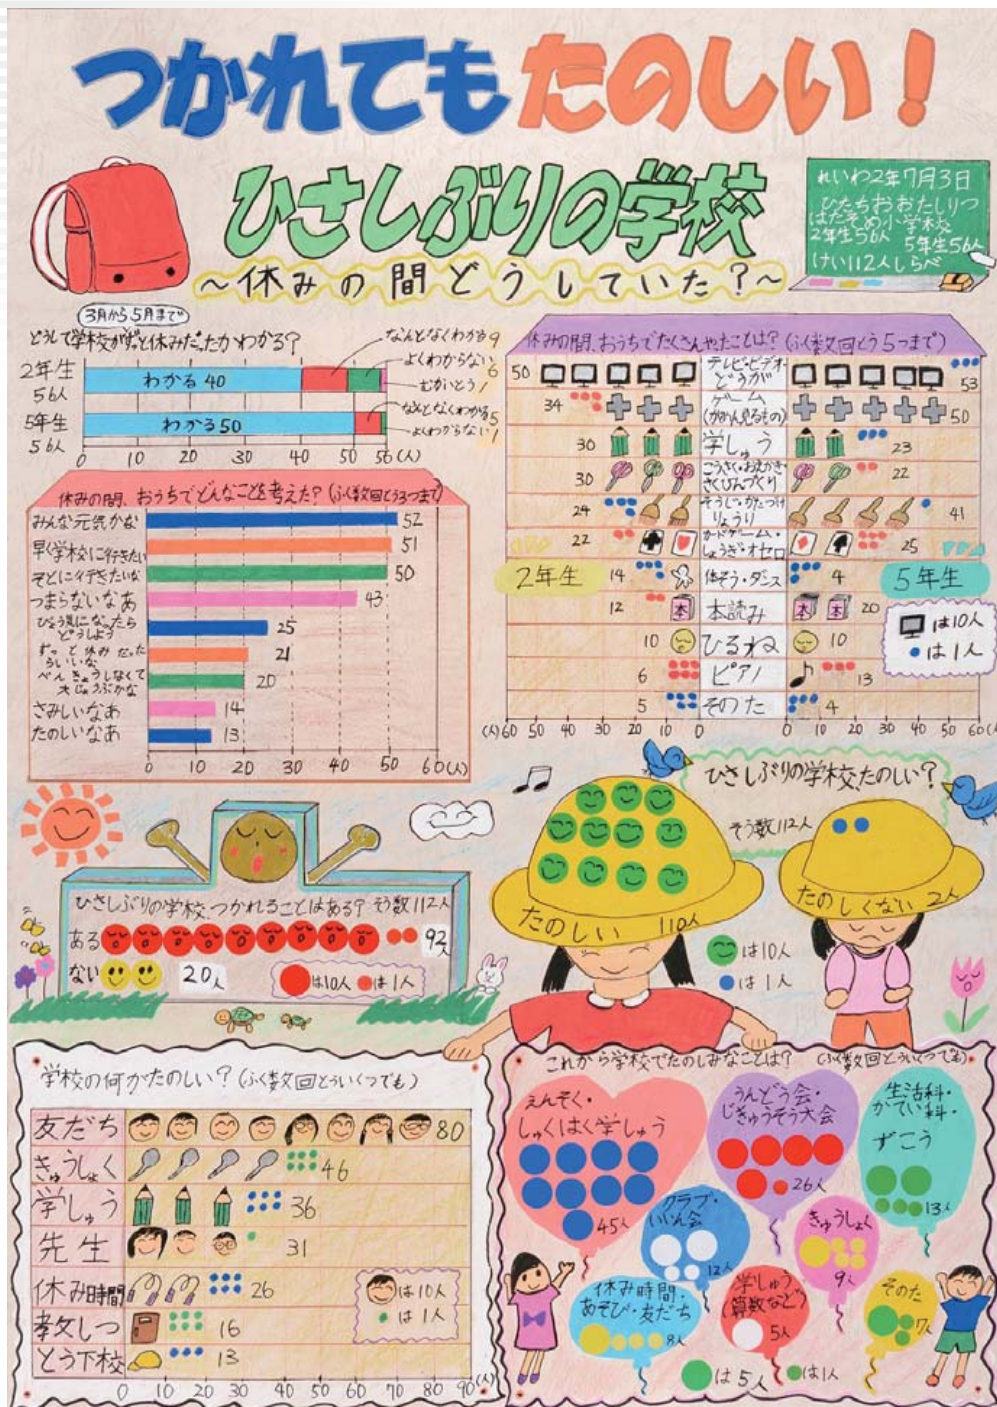 つかれてもたのしい!
ひさしぶりの学校
～休みの間どうしていた?～
れいわ2年7月3日
ひたちおおたしりつ
はたそめ小学校
2年生56人 5年生56人
けい112人しらべ
3月から5月まで
どうして学校がずっと休みだったかわかる?
なんとなくわかる9
よくわからない6
むかいとう1
2年生
56人
わかる40
なんとなくわかる5
よくわからない1
5年生
56人
わかる50
0 10 20 30 40 50 56(人)
休みの間、おうちでどんなことを考えた?(ふく数回とう3つまで)
みんな元気かな 52
早く学校に行きたい 51
そとに行きたいな 50
つまらないなあ 43
びょう気になったら
どうしよう 25
ずっと休みだった
らいいな 21
べんきょうしなくて
大じょうぶかな 20
さみしいなあ 14
たのしいなあ 13
0 10 20 30 40 50 60(人)
休みの間、おうちでたくさんやったことは?(ふく数回とう5つまで)
50 テレビ・ビデオ・
どうが 53
34 ゲーム
(がめん見るもの) 50
30 学しゅう 23
30 こうさく・おえかき
さくひんづくり 22
24 そうじ・かたづけ
りょうり 41
22 カードゲーム・
しょうぎ・オセロ 25
2年生
14 体そう・ダンス 4
5年生
12 本 本読み 本 本 20
10 ひるね 10
6 ピアノ 13
5 そのた 4
は10人
は1人
(人)60 50 40 30 20 10 0 0 10 20 30 40 50 60(人)
ひさしぶりの学校、たのしい?
そう数112人
たのしい 110人
たのしくない 2人
は10人
は1人
ひさしぶりの学校、つかれることはある? そう数112人
ある 92人
ない 20人
は10人 は1人
学校の何がたのしい?(ふく数回とういくつでも)
友だち 80
きゅうしょく 46
学しゅう 36
先生 31
休み時間 26
教しつ 16
とう下校 13
は10人
は1人
0 10 20 30 40 50 60 70 80 90(人)
これから学校でたのしみなことは?(ふく数回とういくつでも)
えんそく・
しゅくはく学しゅう
45人
うんどう会・
じきゅうそう大会
26人
生活科・
かてい科・
ずこう
13人
クラブ・
いいん会
12人
きゅうしょく
9人
休み時間・
あそび・友だち
8人
学しゅう
(算数など)
5人
そのた
7人
は5人 は1人